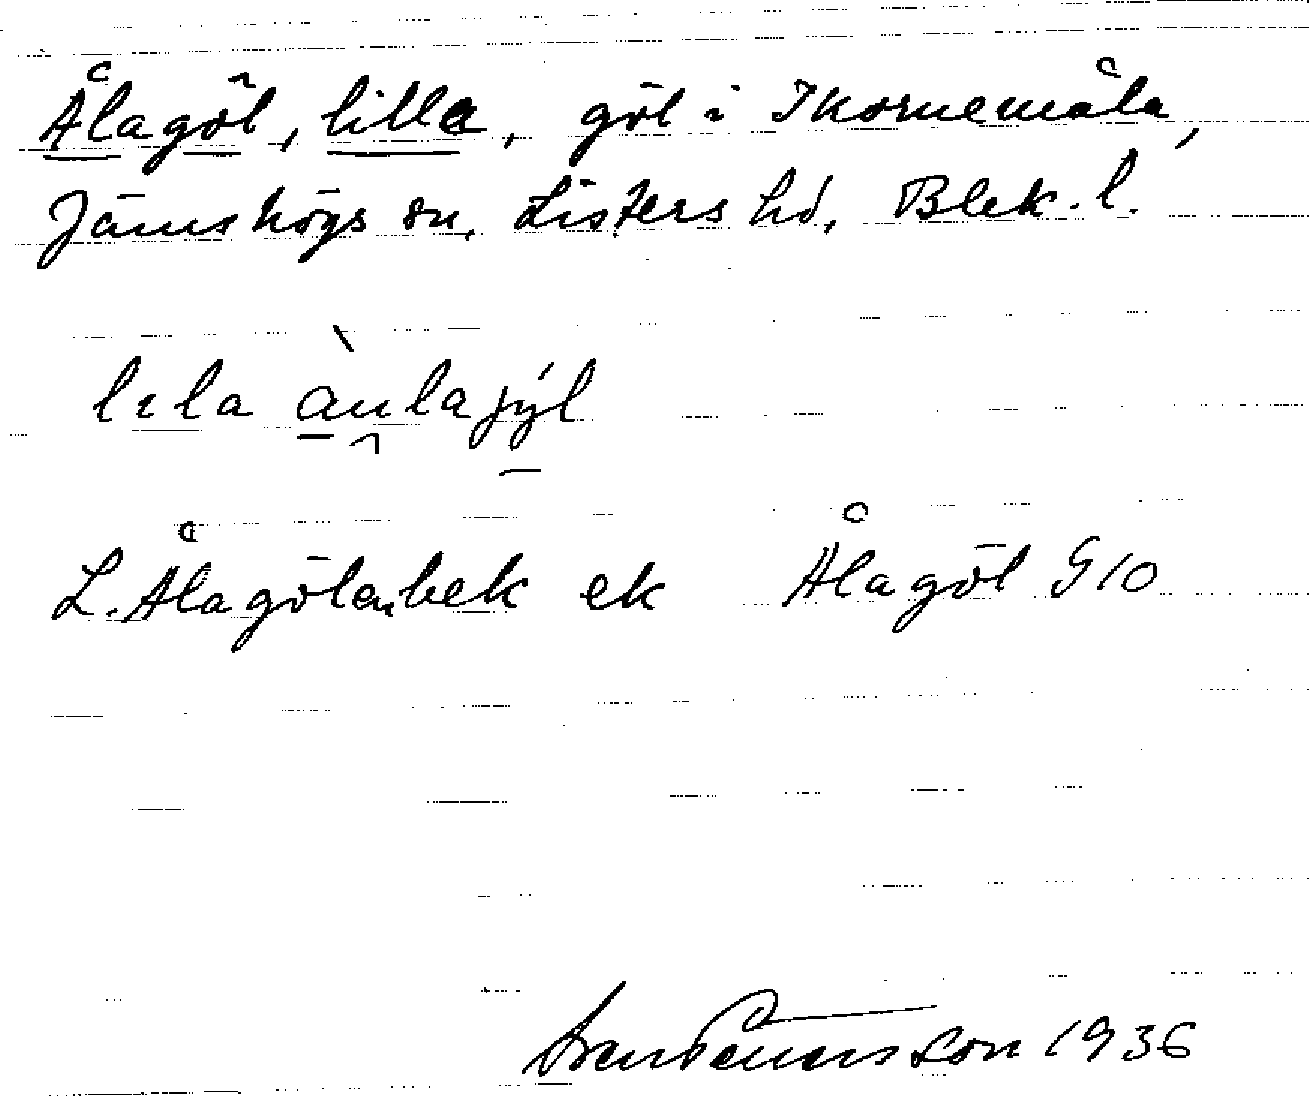 Ålagöl, lilla, göl i Ikornemåla,
Jämshögs sn, Listers hd, Blek. l.
lila àulajýl
L. Ålagölenbek ek Ålagöl G10
Sven Benson 1936